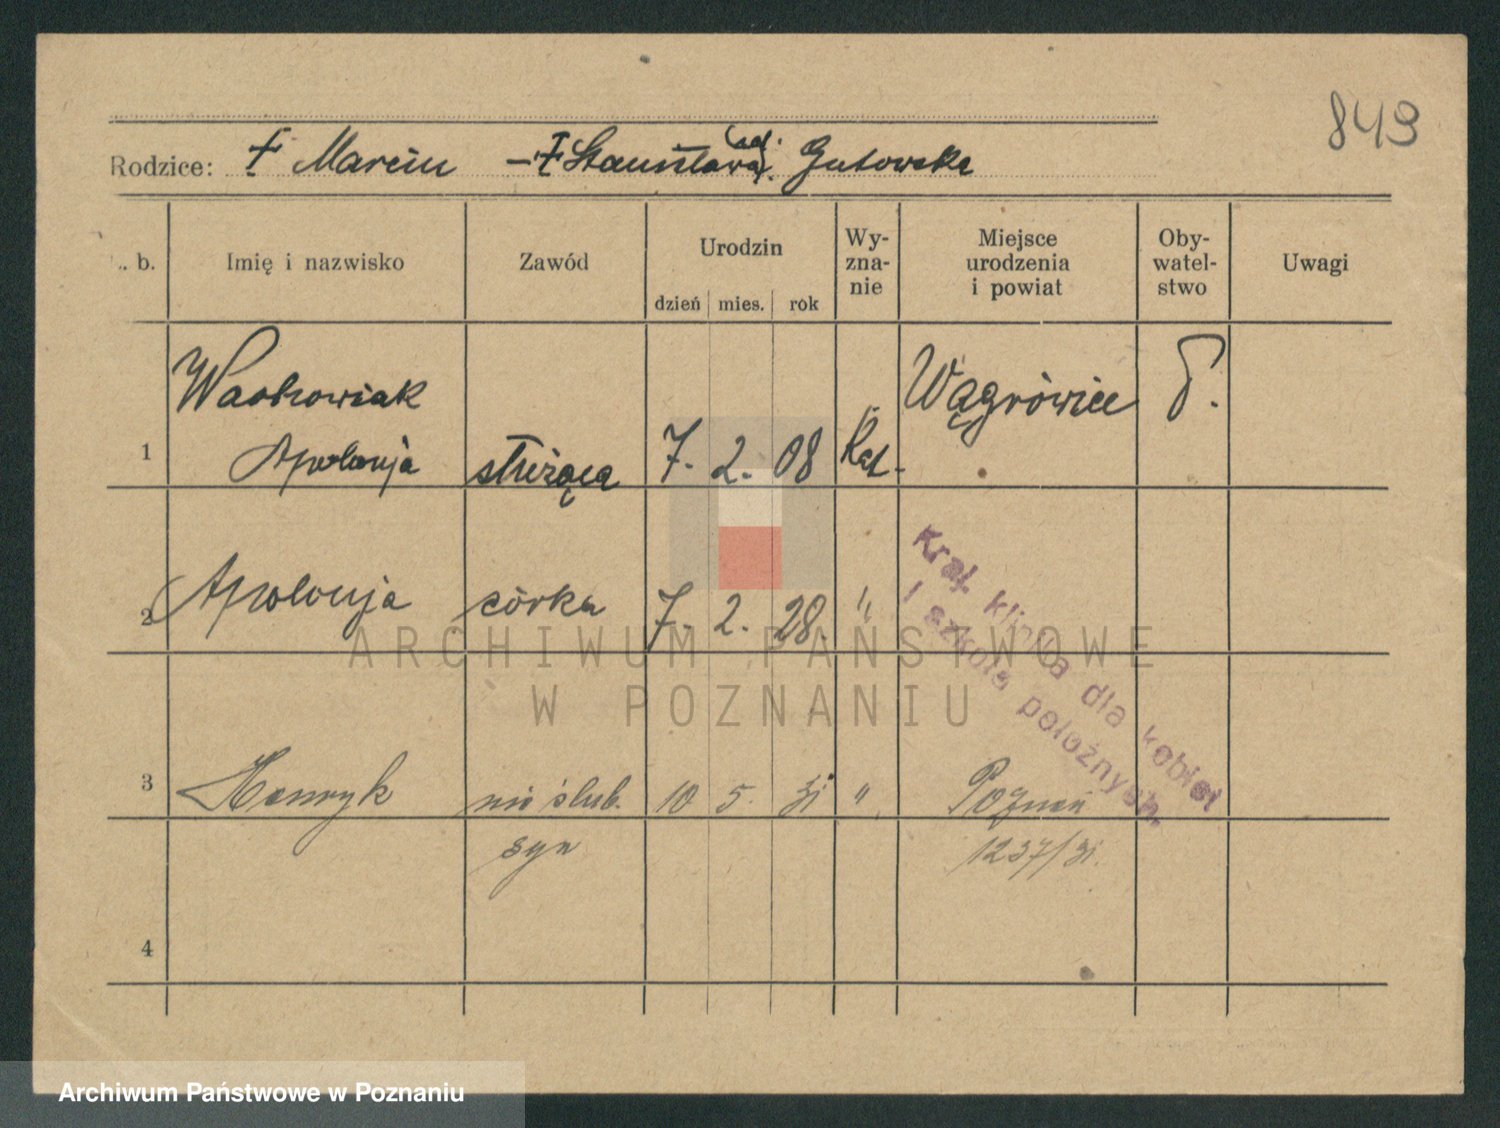 849
Rodzice: † Marcin – † Stanisława Gutowska
L. b. Imię i nazwisko Zawód Urodzin dzień mies. rok Wy-zna-nie Miejsce urodzenia i powiat Oby-watel-stwo Uwagi
1 Wachowiak Apolonja służąca 7. 2. 08 Kat. Wągrówiec P.
2 Apolonja córka 7. 2. 28. "
Kraj. klinika dla kobiet
i szkoła położnych.
3 Henryk nieślub. syn 10 5. 31 " Poznań 1237/31.
4
ARCHIWUM PAŃSTWOWE
W POZNANIU
Archiwum Państwowe w Poznaniu